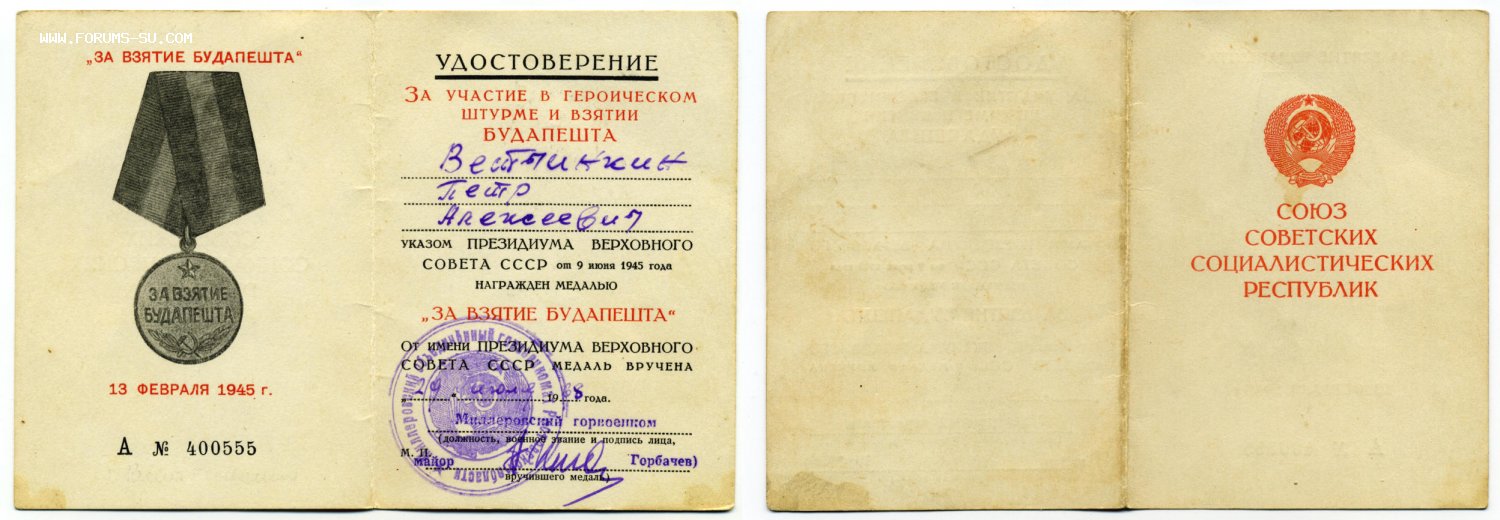 WWW.FORUMS-SU.COM
„ЗА ВЗЯТИЕ БУДАПЕШТА“
ЗА ВЗЯТИЕ
БУДАПЕШТА
13 ФЕВРАЛЯ 1945 г.
А № 400555
УДОСТОВЕРЕНИЕ
ЗА УЧАСТИЕ В ГЕРОИЧЕСКОМ
ШТУРМЕ И ВЗЯТИИ
БУДАПЕШТА
Петр
Алексеевич
УКАЗОМ ПРЕЗИДИУМА ВЕРХОВНОГО
СОВЕТА СССР от 9 июня 1945 года
НАГРАЖДЕН МЕДАЛЬЮ
„ЗА ВЗЯТИЕ БУДАПЕШТА“
ОТ ИМЕНИ ПРЕЗИДИУМА ВЕРХОВНОГО
СОВЕТА СССР МЕДАЛЬ ВРУЧЕНА
19 8 года.
Миллеровский горвоенком
(должность, военное звание и подпись лица,
М. П.
майор Горбачев)
вручившего медаль)
СОЮЗ
СОВЕТСКИХ
СОЦИАЛИСТИЧЕСКИХ
РЕСПУБЛИК